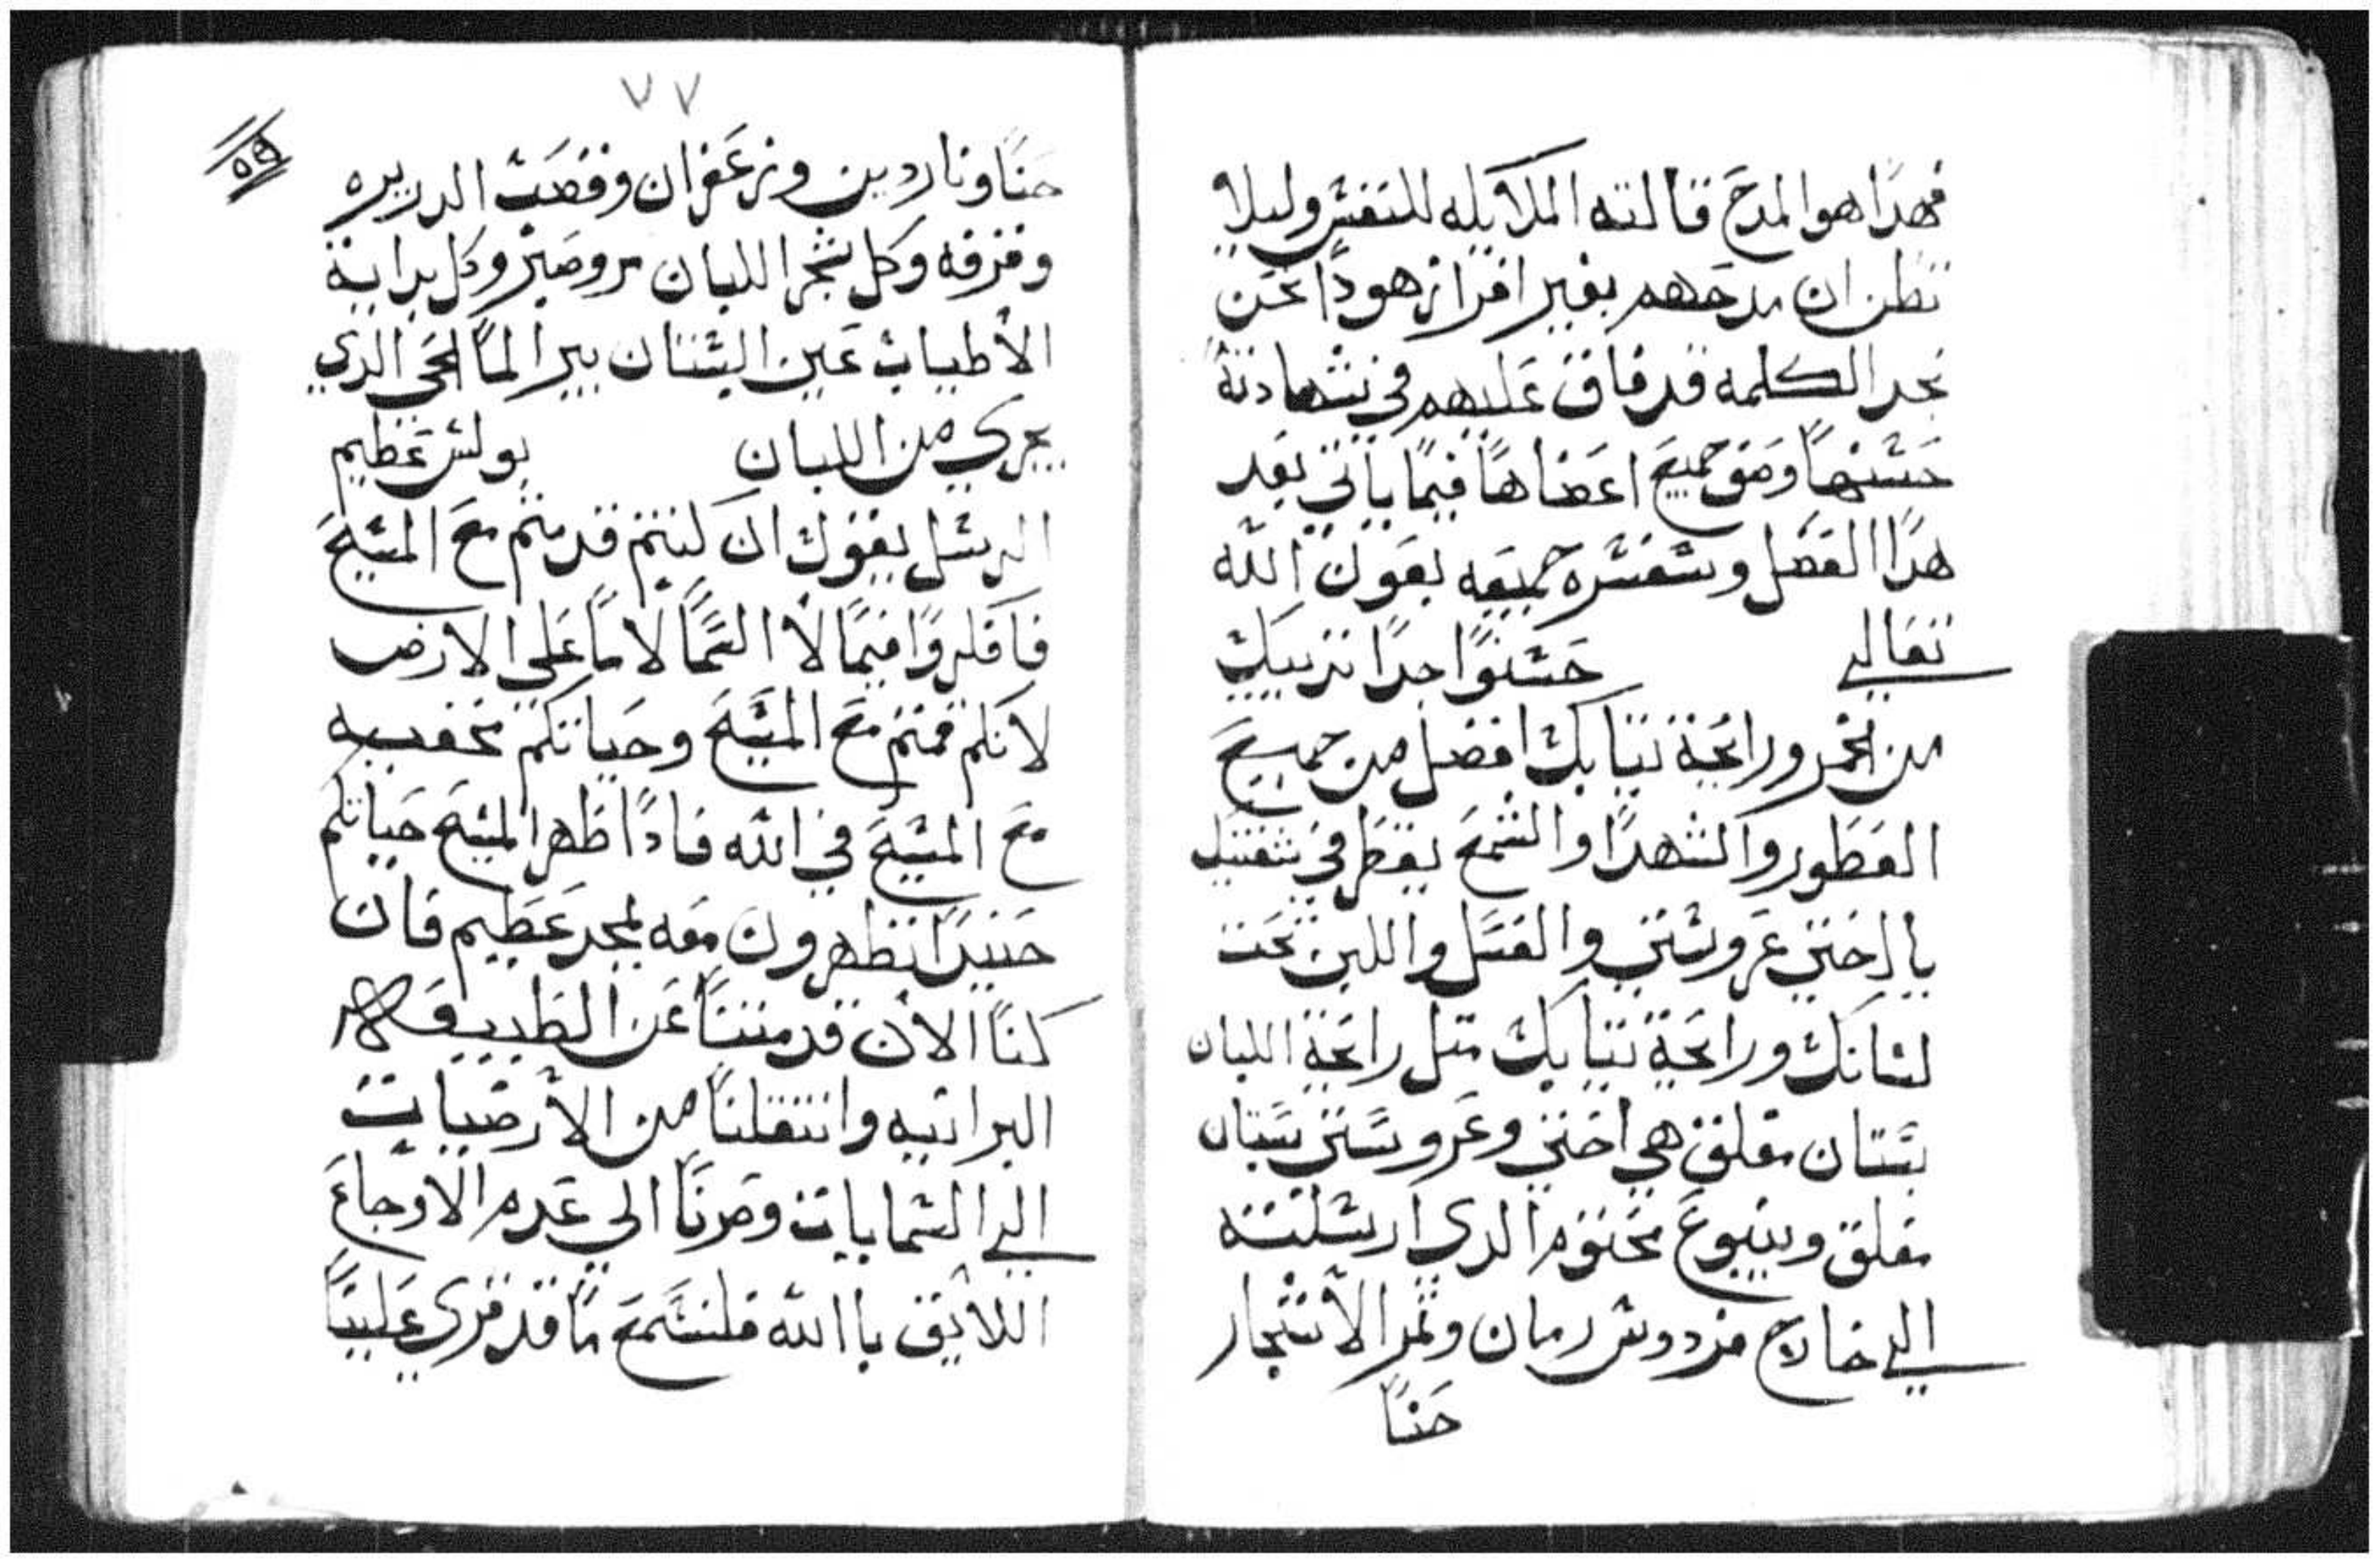 فهدا هوا لمدح قالته الملايكه للنفس وليلا
تظن ان مدحهم بغير افراز هودا نحن
نجد الكلمه قد فاق عليهم في شهادته
حسنها وصف جميع اعضاها فيما ياتي بعد
هدا الفصل وسنفسره جميعه بعون الله
تعالي حسنوا جدا تدييك
من الخمر ورائحة تيابك افضل من جميع
العطور والشهدا والشمع يقطر في شفتيك
يا اختي عروستي والعسل واللبن تحت
لسانك ورائحة تيابك متل رائحة اللبان
بستان مغلق هي اختي وعروستي بستان
مغلق وينبوع مختوم الدي ارسلته
الي خارج فردوس رمان وتمر الاشجار
حنا
٧٧
٥٩
حنا وناردين وزعفران وقصب الدريره
وقرفه وكل شجر اللبان مر وصبر وكل بداية
الاطياب عين البستان بير الما الحي الدي
يجري من اللبان بولس عظيم
الرسل يقول ان كنتم قد متم مع المسيح
فافكروا فيما لا السما لا ما علي الارض
لانكم قمتم مع المسيح وحياتكم مخفيه
مع المسيح في الله فادا ظهر المسيح حياتكم
حينيدا تظهرون معه بمجد عظيم فان
كنا الان قد متنا عن الطبيعه
البرانيه وانتقلنا من الارضيات
الي السمايات وصرنا الي عدم الاوجاع
اللايق با الله فلنسمع ما قد قري علينا